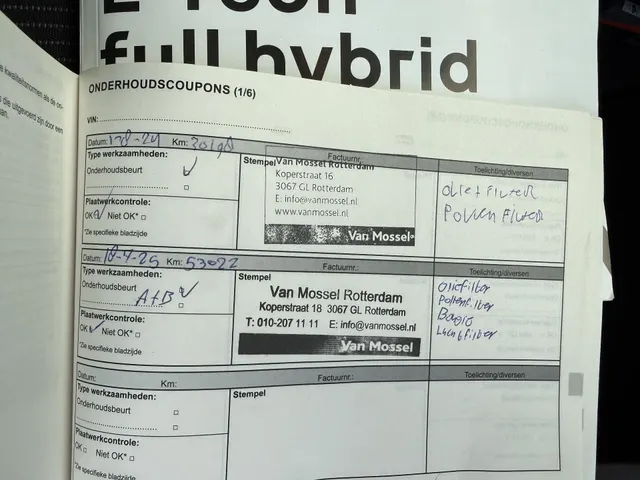 E-Tech
full hybrid
e kwaliteitsnormen als de on-
s die uitgevoerd zijn door een
ONDERHOUDSCOUPONS (1/6)
VIN:
Datum: Km: Factuurnr. Toelichting/diversen
Type werkzaamheden:
Onderhoudsbeurt
Plaatwerkcontrole:
OK Niet OK* □
*Zie specifieke bladzijde
Stempel
Van Mossel Rotterdam
Koperstraat 16
3067 GL Rotterdam
E: info@vanmossel.nl
www.vanmossel.nl
Van Mossel
Pollen Filter
Datum: 18-4-25 Km: 53022 Factuurnr.: Toelichting/diversen
Type werkzaamheden:
Onderhoudsbeurt
A+B
Plaatwerkcontrole:
OK Niet OK* □
*Zie specifieke bladzijde
Stempel
Van Mossel Rotterdam
Koperstraat 18 3067 GL Rotterdam
T: 010-207 11 11 E: info@vanmossel.nl
Van Mossel
oliefilter
Pollenfilter
Luchtfilter
Datum: Km: Factuurnr.: Toelichting/diversen
Type werkzaamheden:
Onderhoudsbeurt □
□
Plaatwerkcontrole:
OK □ Niet OK* □
*Zie specifieke bladzijde
Stempel